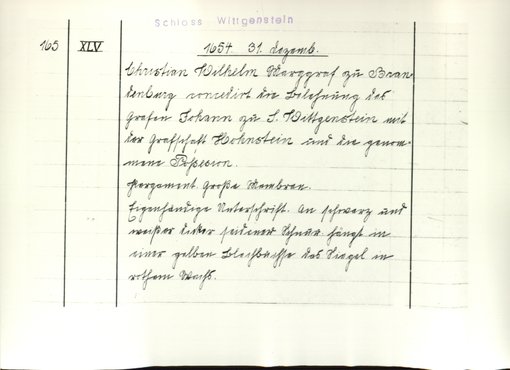 Schloss Wittgenstein
165 XLV 1654 31. Dezemb.
Christian Wilhelm Marggraf zu Bran
denburg concedirt die Belehnung des
Grafen Johann zu S. Wittgenstein mit
der Grafschaft Hohnstein und die genom-
mene Possession.
Pergament. Große Membran.
Eigenhändige Unterschrift. An schwarz und
weißer dicker seidener Schnur hängt in
einer gelben Blechbüchse das Siegel in
rothem Wachs.